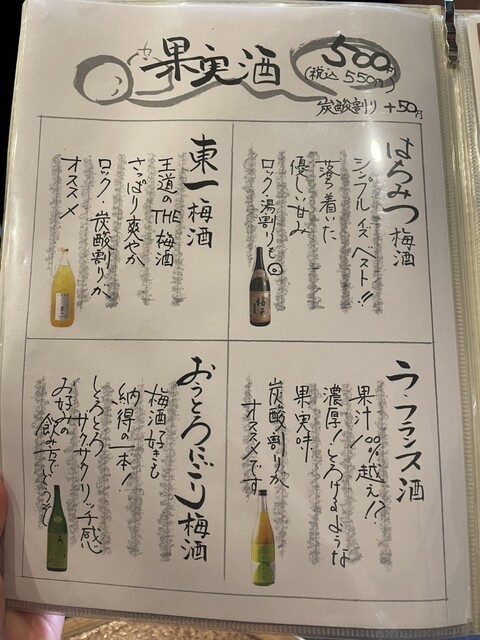 果実酒
500円
(税込550円)
炭酸割り +50円
はちみつ梅酒
シンプルイズベスト!!
落ち着いた
優しい甘み
ロック・湯割りも◎
東一梅酒
王道のTHE梅酒
さっぱり爽やか
ロック・炭酸割りが
オススメ
ラ・フランス酒
果汁100%越え!?
濃厚!とろけるような
果実味
炭酸割りが
オススメです
おっとろにごり梅酒
梅酒好きも
納得の一本!
とろとろ
ザクザクリッチ感
お好みの
飲み方でどうぞ